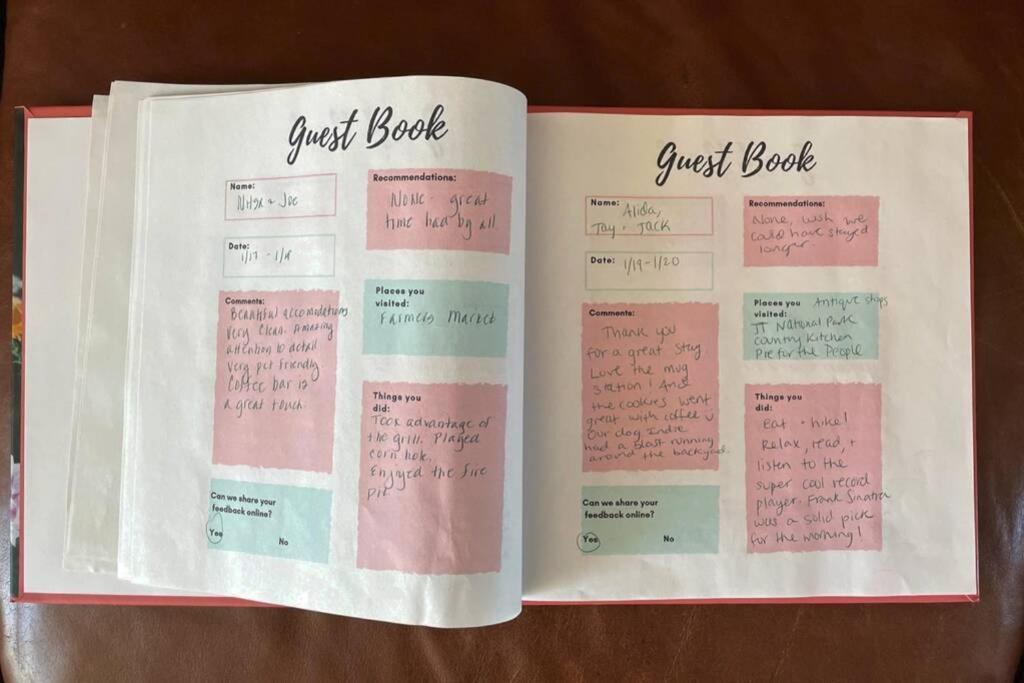 Guest Book
Name:
Joe
Date:
1/17 - 1/19
Comments:
Beautiful accomodations
very clean. Amazing
attention to detail
very pet friendly.
Coffee bar is
a great touch.
Can we share your
feedback online?
Yes
No
Recommendations:
None - great
time had by all.
Places you
visited:
Farmers Market
Things you
did:
Took advantage of
the grill. Played
corn hole.
Enjoyed the fire
pit
Guest Book
Name: Alida,
Jay + Jack
Date: 1/19-1/20
Comments:
Thank you
for a great stay.
Love the mug
station! And
the cookies went
great with coffee
Our dog Indie
had a blast running
around the backyard.
Can we share your
feedback online?
Yes
No
Recommendations:
None, wish we
could have stayed
longer.
Places you Antique shops
visited:
National Park
Country Kitchen
Pie for the People
Things you
did:
Eat + hike!
Relax, read, +
listen to the
super cool record
player. Frank Sinatra
was a solid pick
for the morning!